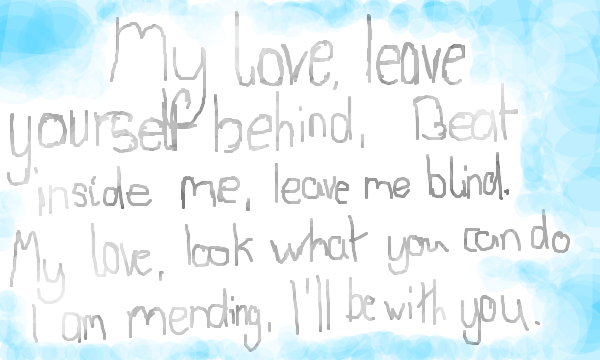 My love, leave
yourself behind, Beat
inside me, leave me blind.
My love, look what you can do
I am mending, I'll be with you.